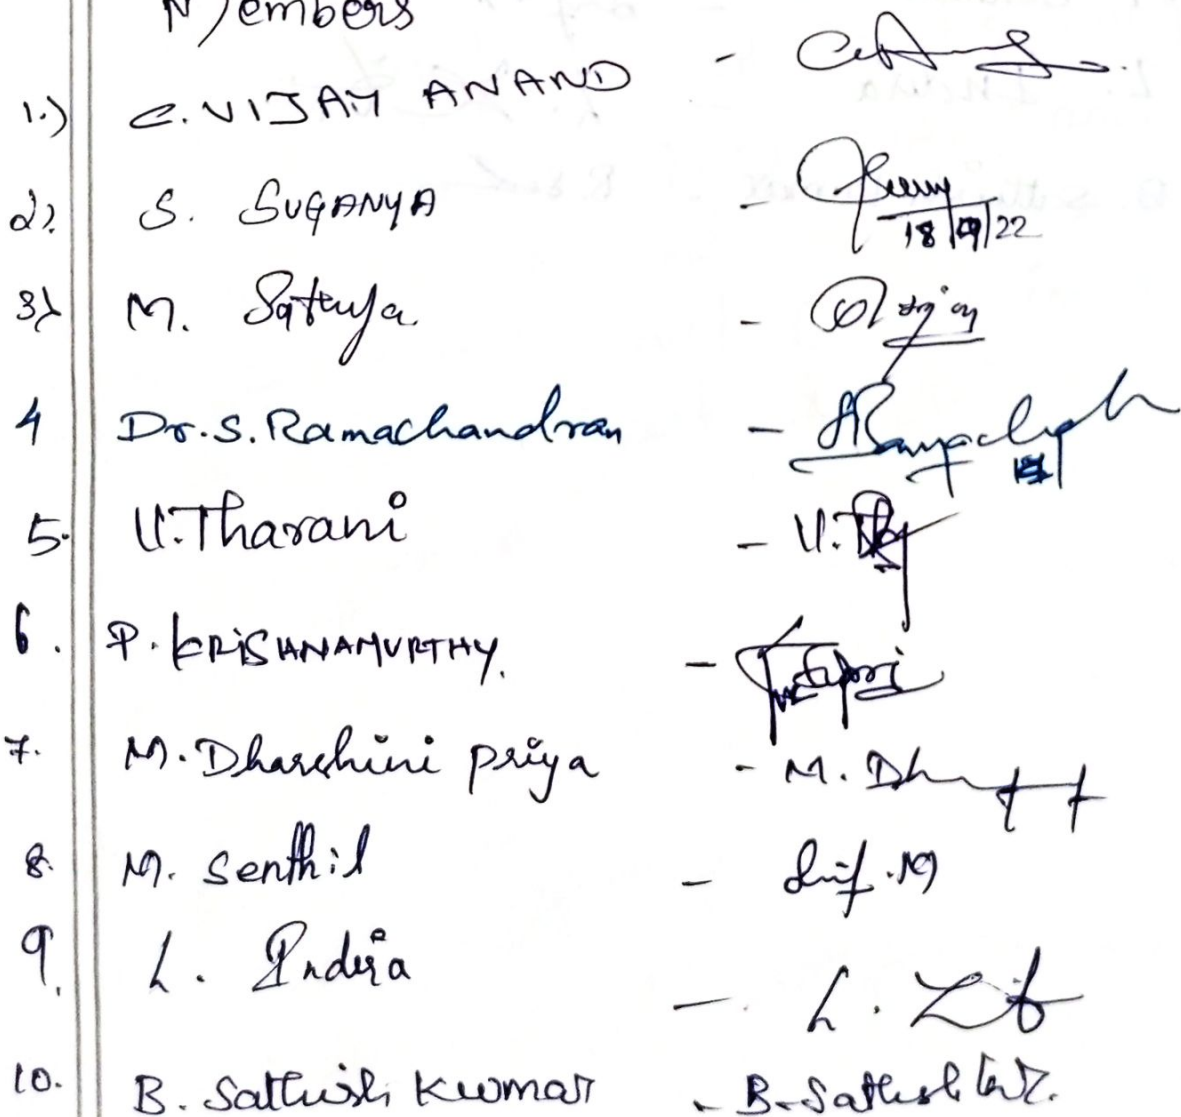 Members
1.) C. VIJAY ANAND -
2). S. SUGANYA - 18/9/22
3) M. Sathya -
4 Dr. S. Ramachandran -
5. V. Tharani - V.
6. P. KRISHNAMURTHY. -
7. M. Dharshini priya - M. Dh
8. M. Senthil - M
9. L. Indira - L.
10. B. Sathish Kumar - B. Sathish